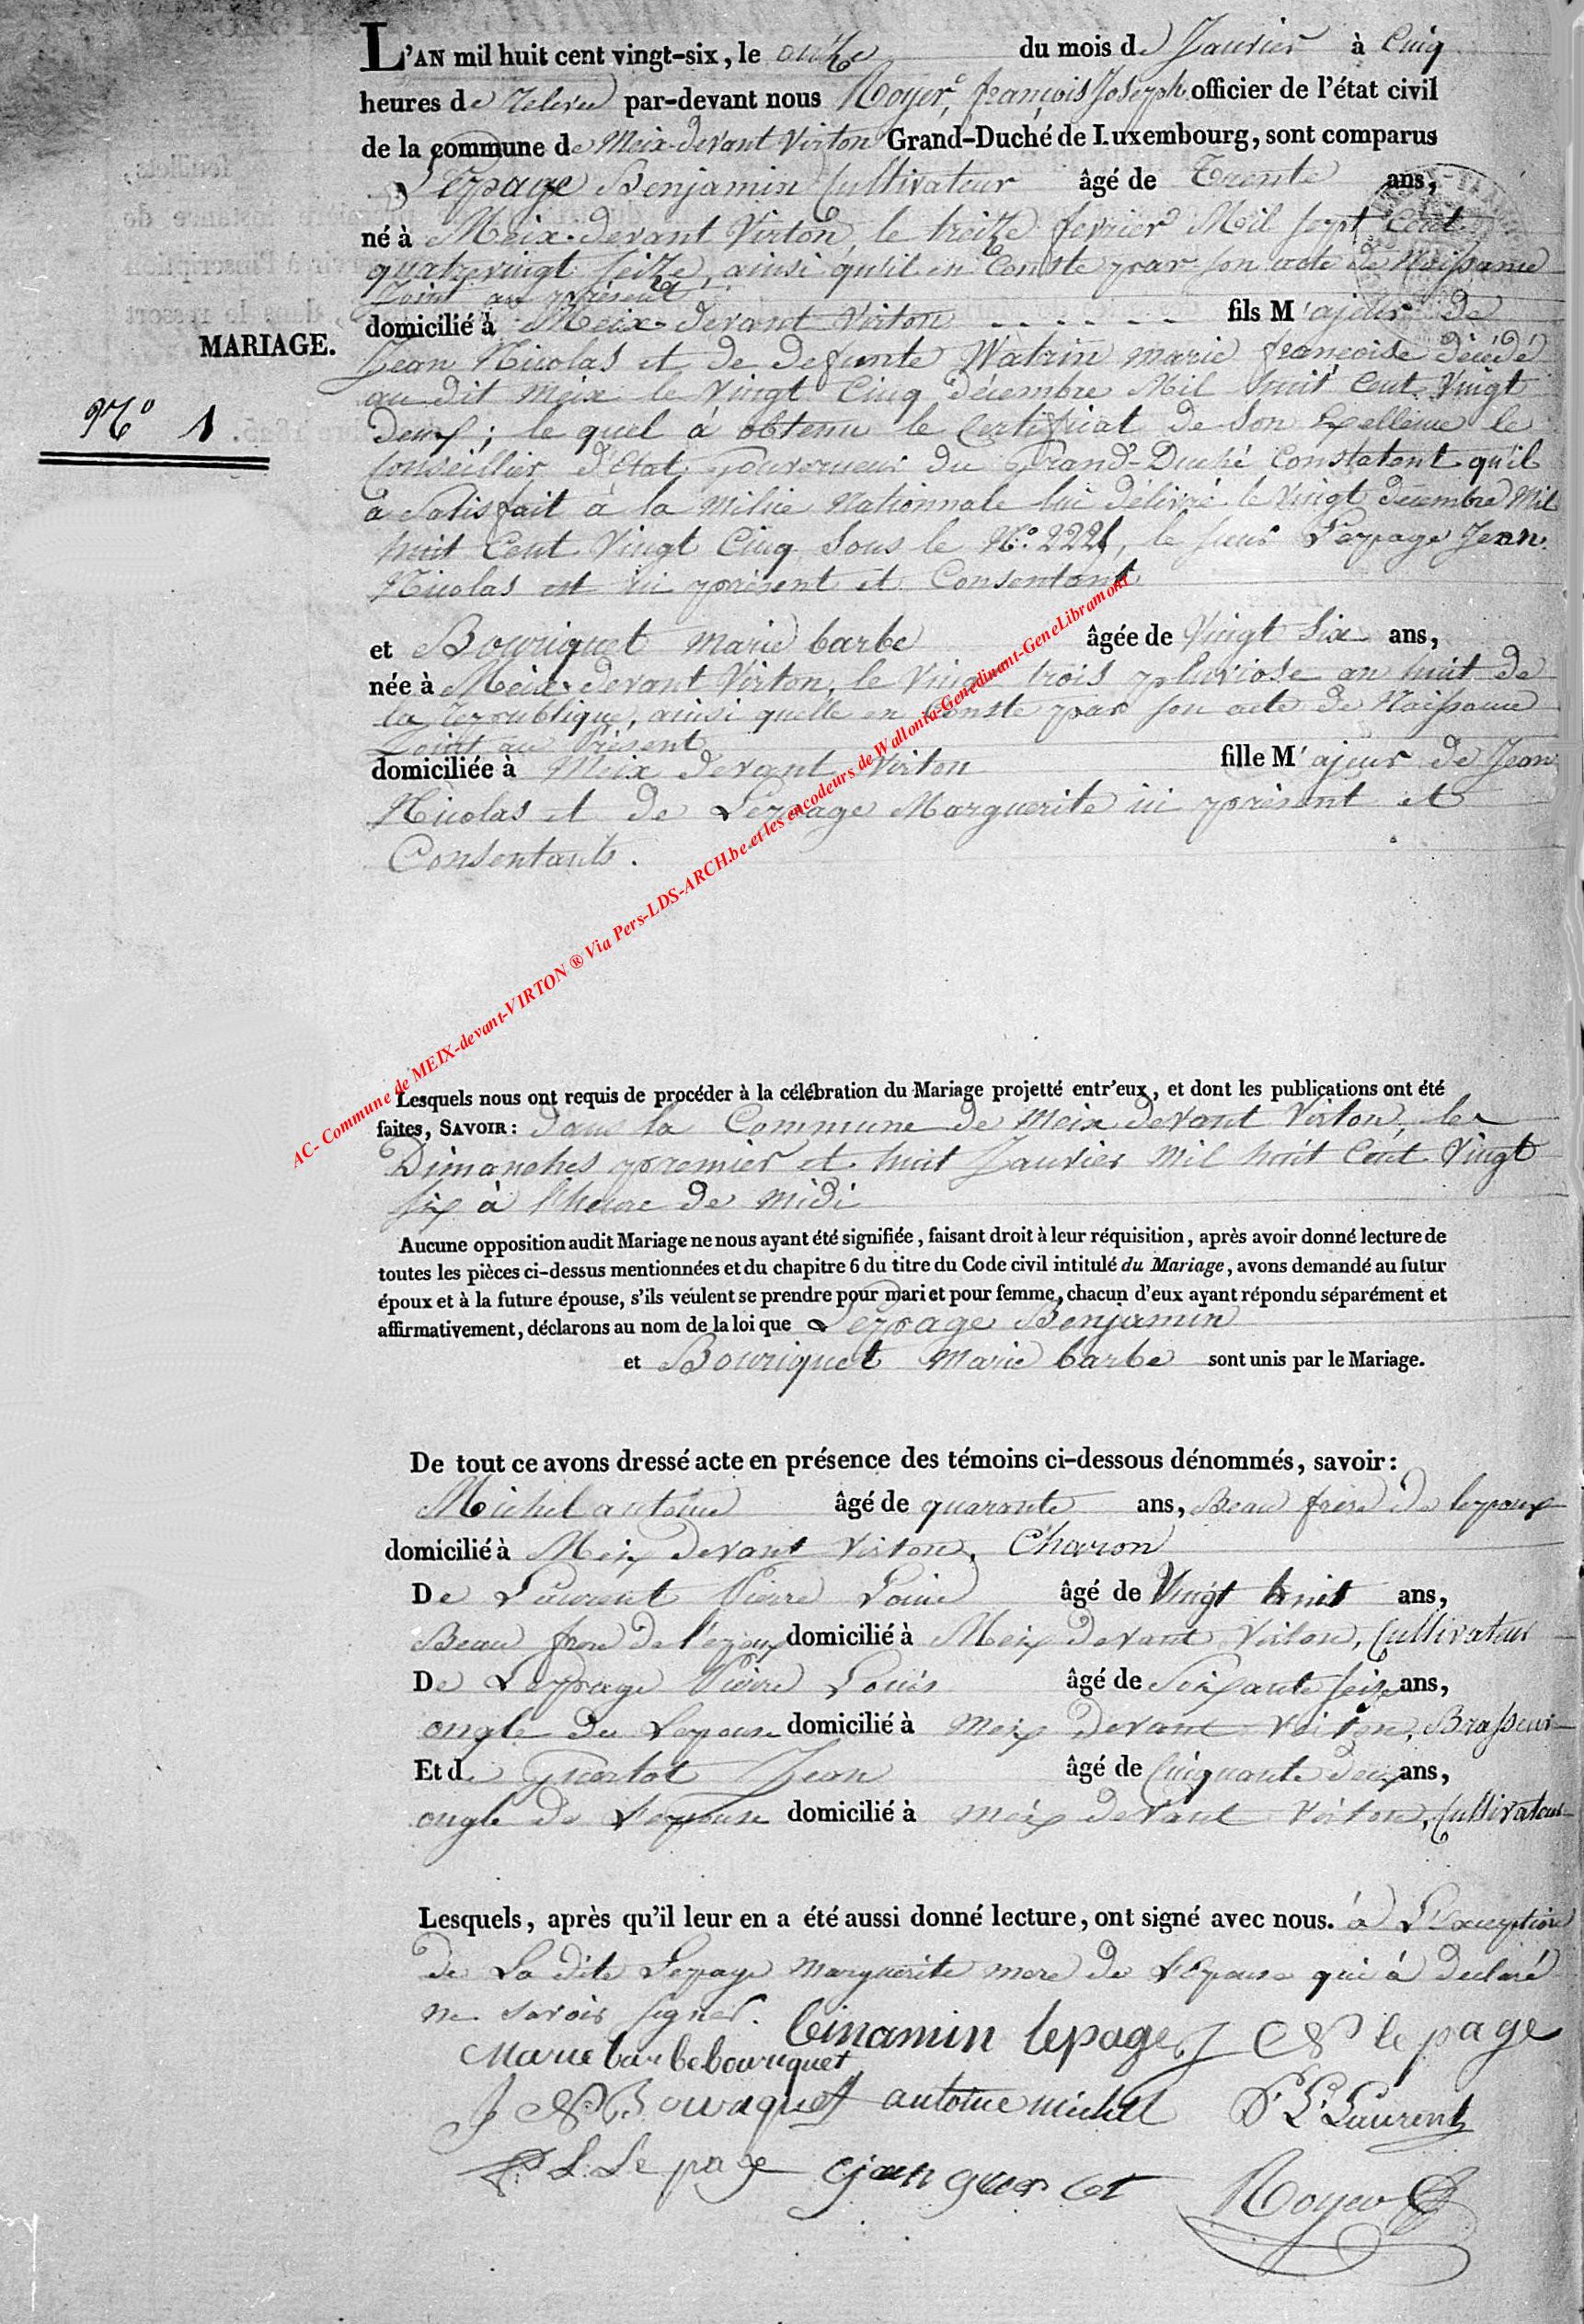 L'AN mil huit cent vingt-six, le onze du mois de Janvier à Cinq
heures de relevé par-devant nous Royer, françois Joseph officier de l'état civil
de la commune de Meix-devant Virton Grand-Duché de Luxembourg, sont comparus
Lepage Benjamin Cultivateur âgé de Trente ans,
né à Meix-devant Virton, le treize fevrier Mil sept Cent
quatrevingt seize, ainsi qu'il en Conste par son acte de Naissance
Joint au présent
domicilié à Meix-devant Virton - - - - - - fils M'ajeur de
MARIAGE.
Jean Nicolas et de defunte Watrin marie françoise décédé
au dit Meix le Vingt Cinq décembre Mil huit Cent Vingt
N° 1
Deux ; le quel à obtenu le Certificat de Son Exellence le
Conseillier d'Etat, Gouverneur du Grand-Duché Constatant qu'il
à Satisfait à la Milice Nationnale lui délivré le Vingt décembre Mil
huit Cent Vingt Cinq Sous le N.° 2221, le sieur Lepage Jean
Nicolas est ici présent et Consentant
et Bouriquet Marie barbe âgée de Vingt Six ans,
née à Meix-devant Virton, le Vingt trois pluviose an huit de
la republique, ainsi quelle en Conste par son acte de Naissance
Joint au Présent
domiciliée à Meix devant Virton fille M'ajeur de Jean
Nicolas et de Lepage Marguerite ici présent et
Consentants.
AC- Commune de MEIX-devant-VIRTON ® Via Pers-LDS-ARCH.be et les encodeurs de Wallonia-Genedinant-GeneLibramont
Lesquels nous ont requis de procéder à la célébration du Mariage projetté entr'eux, et dont les publications ont été
faites, SAVOIR : dans la Commune de Meix devant Virton, les
Dimanches premier et huit Janvier Mil huit Cent Vingt
six à l'heure de midi
Aucune opposition audit Mariage ne nous ayant été signifiée, faisant droit à leur réquisition, après avoir donné lecture de
toutes les pièces ci-dessus mentionnées et du chapitre 6 du titre du Code civil intitulé du Mariage, avons demandé au futur
époux et à la future épouse, s'ils veulent se prendre pour mari et pour femme, chacun d'eux ayant répondu séparément et
affirmativement, déclarons au nom de la loi que Lepage Benjamin
et Bouriquet Marie barbe sont unis par le Mariage.
De tout ce avons dressé acte en présence des témoins ci-dessous dénommés, savoir :
Michel antoine âgé de quarante ans, Beau frere de lepoux
domicilié à Meix devant Virton, Charon
De Laurent Pierre Louis âgé de Vingt huit ans,
Beau frere de l'epoux domicilié à Meix devant Virton, Cultivateur
De Lepage Pierre Louis âgé de Soixante seize ans,
ongle de Lepouse domicilié à Meix devant Virton, Brasseur
Et de Guertot Jean âgé de Cinquante deux ans,
ongle de Lepouse domicilié à Meix devant Virton, Cultivateur
Lesquels, après qu'il leur en a été aussi donné lecture, ont signé avec nous. à L'Exception
de La dite Lepage Marguerite mere de L'Epouse qui à declaré
ne savoir signer. beinamin lepage J N le page
Marie barbe bouriquet
J N Bouriquet antoine michel P L Laurent
P. L. Le page jean guertot Royer